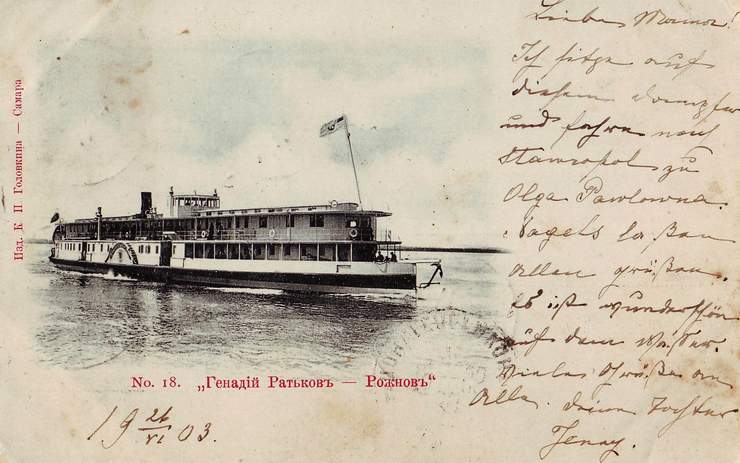 Изд. К. П. Головкина — Самара
No. 18. „Генадій Ратьковъ — Рожновъ“
19 26/VI 03.
Liebe Mama!
Ich sitze auf
diesem Dampfer
und fahre nach
Stawropol zu
Olga Pawlowna.
Nagels laßen
Allen grüßen.
Es ist wunderschön
auf dem Waßer.
Viele Grüße an
Alle. Deine Tochter
Jenny.